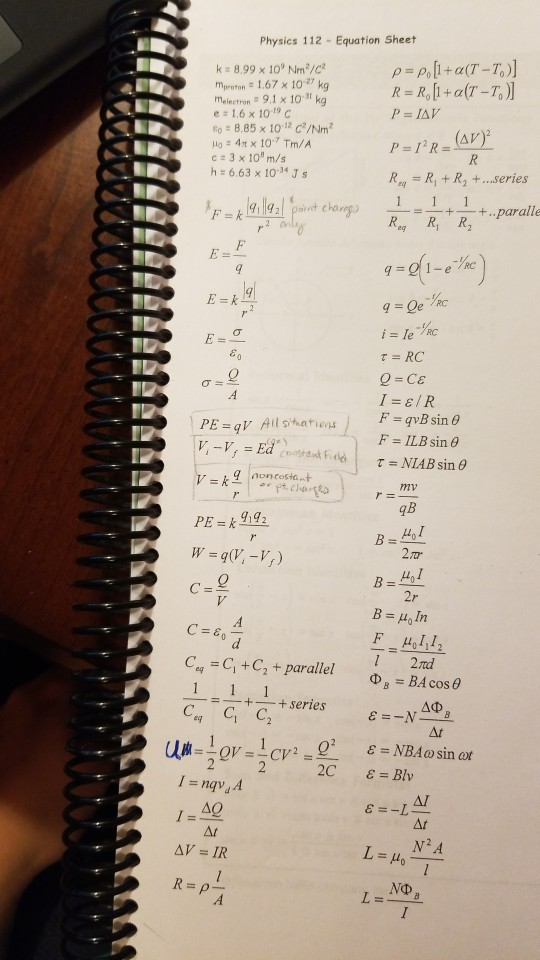 Physics 112 - Equation Sheet
k = 8.99 x 10⁹ Nm²/C²
mproton = 1.67 x 10⁻²⁷ kg
melectron = 9.1 x 10⁻³¹ kg
e = 1.6 x 10⁻¹⁹ C
ε₀ = 8.85 x 10⁻¹² C²/Nm²
μ₀ = 4π x 10⁻⁷ Tm/A
c = 3 x 10⁸ m/s
h = 6.63 x 10⁻³⁴ J s
* F = k |q₁||q₂| / r² * point charges only
E = F / q
E = k |q| / r²
E = σ / ε₀
σ = Q / A
PE = qV All situations
Vᵢ − V_f = Ed constant field
V = k q / r nonconstant or pt. charges
PE = k q₁q₂ / r
W = q(Vᵢ − V_f)
C = Q / V
C = ε₀ A / d
C_eq = C₁ + C₂ + parallel
1 / C_eq = 1 / C₁ + 1 / C₂ + series
U = 1/2 QV = 1/2 CV² = Q² / 2C
I = nqv_d A
I = ΔQ / Δt
ΔV = IR
R = ρ l / A
ρ = ρ₀[1 + α(T − T₀)]
R = R₀[1 + α(T − T₀)]
P = IΔV
P = I²R = (ΔV)² / R
R_eq = R₁ + R₂ + ...series
1 / R_eq = 1 / R₁ + 1 / R₂ + ..paralle
q = Q(1 − e^(−t/RC))
q = Qe^(−t/RC)
i = Ie^(−t/RC)
τ = RC
Q = Cε
I = ε / R
F = qvB sin θ
F = ILB sin θ
τ = NIAB sin θ
r = mv / qB
B = μ₀I / 2πr
B = μ₀I / 2r
B = μ₀In
F / l = μ₀I₁I₂ / 2πd
Φ_B = BA cos θ
ε = −N ΔΦ_B / Δt
ε = NBAω sin ωt
ε = Blv
ε = −L ΔI / Δt
L = μ₀ N²A / l
L = NΦ_B / I